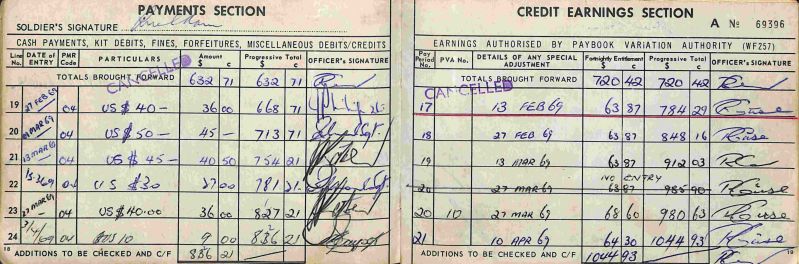 PAYMENTS SECTION
SOLDIER'S SIGNATURE
CASH PAYMENTS, KIT DEBITS, FINES, FORFEITURES, MISCELLANEOUS DEBITS/CREDITS
Line No. DATE of ENTRY PMR Code PARTICULARS Amount $ c Progressive Total $ c OFFICER'S SIGNATURE
TOTALS BROUGHT FORWARD 632 71 632 71
CANCELLED
19 27 FEB 69 04 US $ 40 - 36 00 668 71
20 MAR 69 04 US $ 50 - 45 - 713 71
21 13 MAR 69 04 US $ 45 - 40 50 754 21
22 04 US $ 30 27 00 781 21
23 27 MAR 69 04 US $ 40.00 36 00 827 21
24 3/4/69 04 10 9 00 836 21
18 ADDITIONS TO BE CHECKED AND C/F 836 21
CREDIT EARNINGS SECTION
A No 69396
EARNINGS AUTHORISED BY PAYBOOK VARIATION AUTHORITY (WF257)
Pay Period No. PVA No. DETAILS OF ANY SPECIAL ADJUSTMENT Fortnightly Entitlement $ c Progressive Total $ c OFFICER'S SIGNATURE
TOTALS BROUGHT FORWARD 720 42 720 42
CANCELLED
17 13 FEB 69 63 87 784 29
18 27 FEB 69 63 87 848 16
19 13 MAR 69 63 87 912 03
NO ENTRY
20 27 MAR 69 63 87
20 10 27 MAR 69 68 60 980 63
21 10 APR 69 64 30 1044 93
ADDITIONS TO BE CHECKED AND C/F 1044 93 19